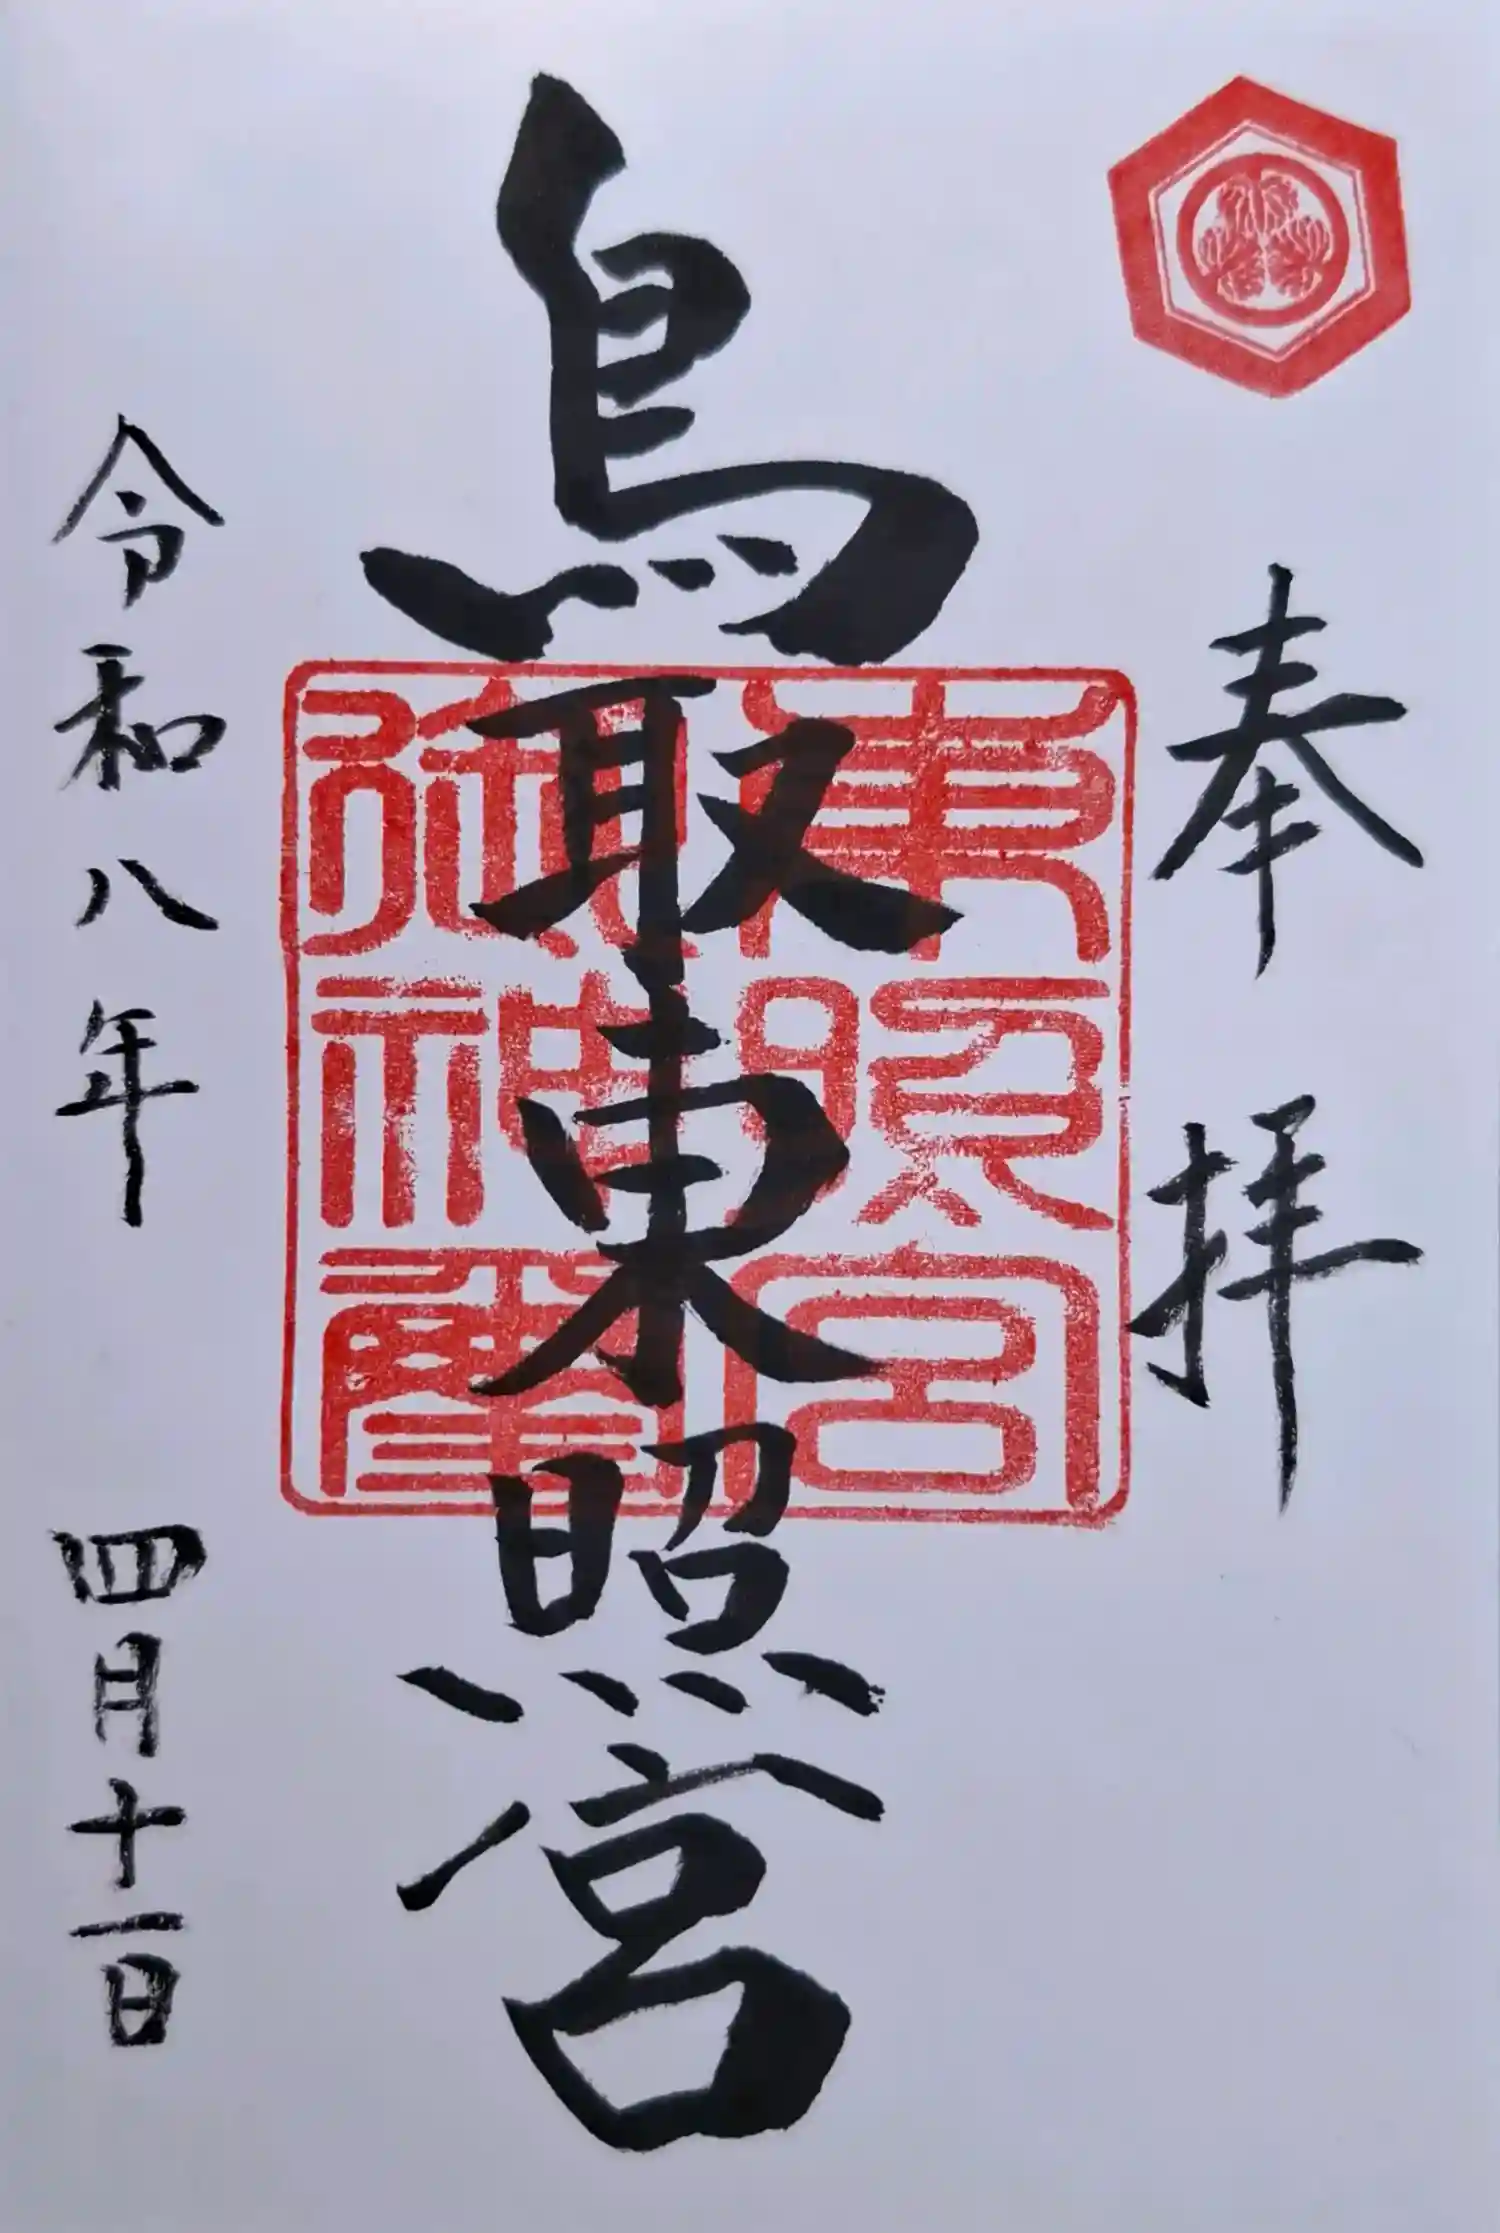 奉拝
鳥取東照宮
東照宮
御神璽
令和八年 四月十一日